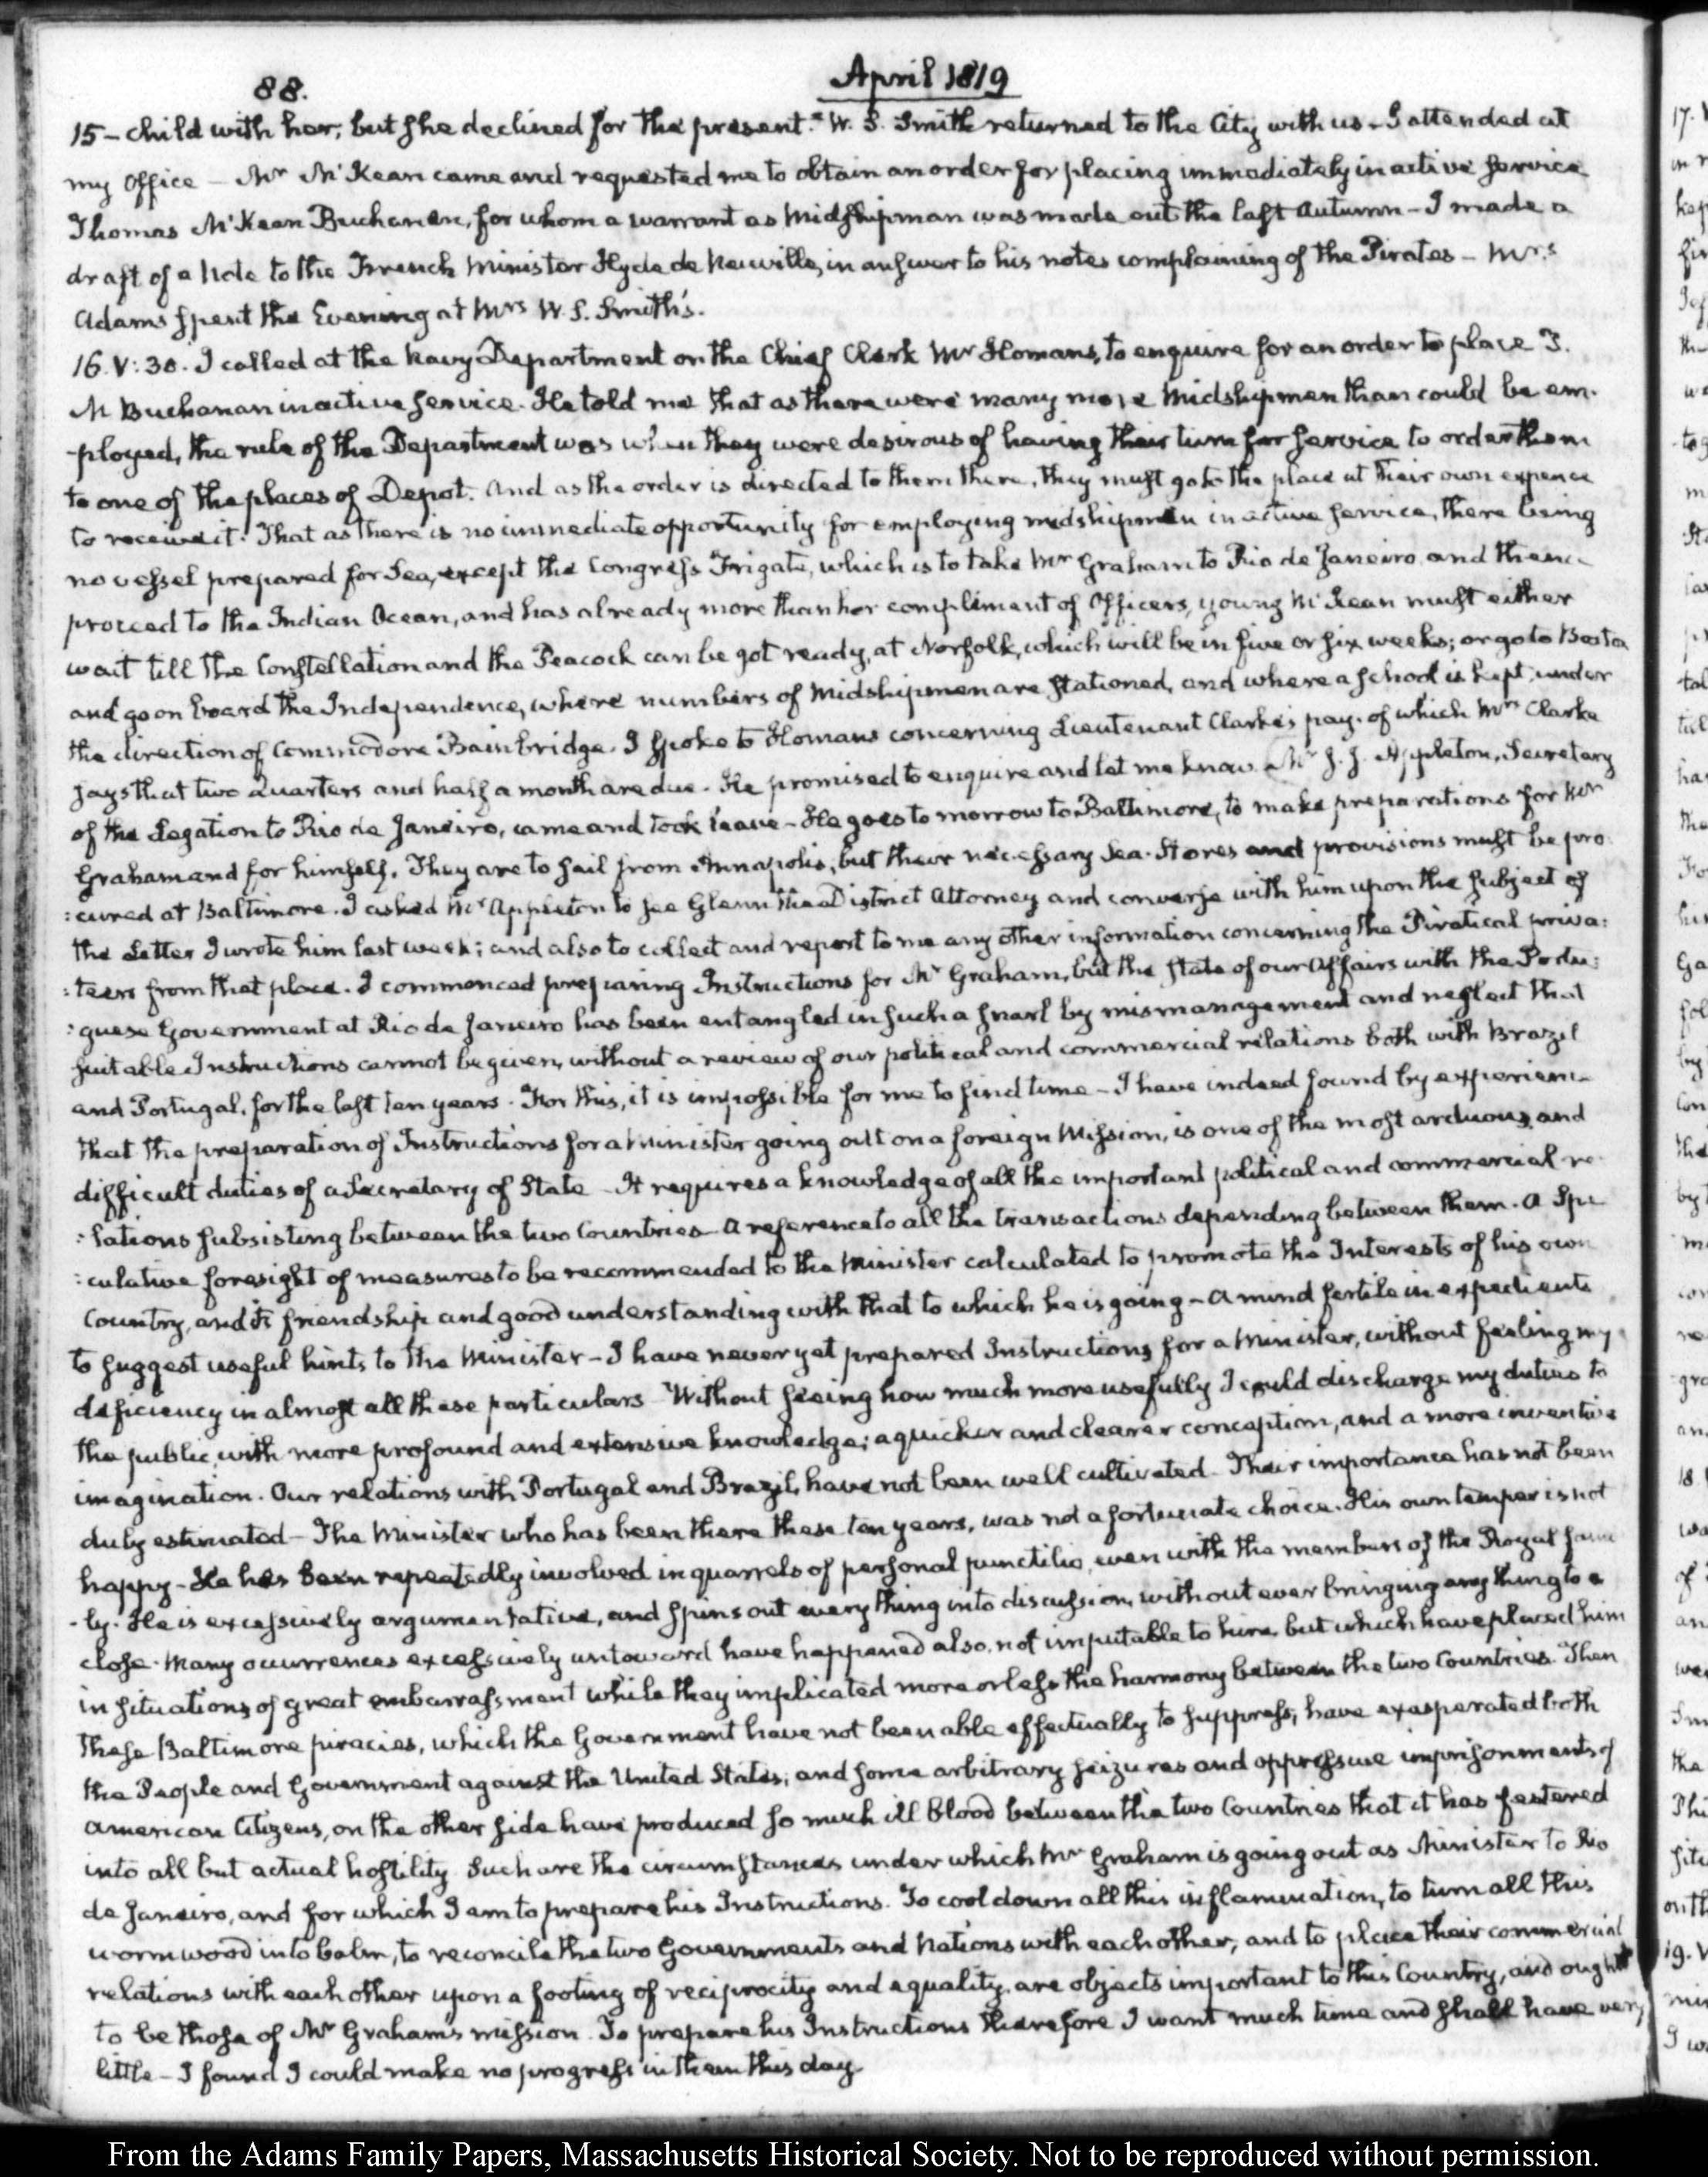 88.
April 1819
15 - child with her, but she declined for the present. W. S. Smith returned to the City with us - I attended at
my Office - Mr McKean came and requested me to obtain an order for placing immediately in active service
Thomas McKean Buchanan, for whom a warrant as Midshipman was made out the last Autumn - I made a
draft of a Note to the French Minister Hyde de Neuville, in answer to his notes complaining of the Pirates - Mrs
Adams spent the Evening at Mrs W. S. Smith's.
16. V:30. I called at the Navy Department on the Chief Clerk Mr Homans, to enquire for an order to place T.
M Buchanan in active service. He told me that as there were many more Midshipmen than could be em-
-ployed, the rule of the Department was when they were desirous of having their turn for service to order them
to one of the places of Depot. And as the order is directed to them there, they must go to the place at their own expence
to receive it. That as there is no immediate opportunity for employing midshipmen in active service, there being
no vessel prepared for Sea, except the Congress Frigate, which is to take Mr Graham to Rio de Janeiro and thence
proceed to the Indian Ocean, and has already more than her compliment of Officers, young McKean must either
wait till the Constellation and the Peacock can be got ready, at Norfolk, which will be in five or six weeks; or go to Boston
and go on board the Independence, where numbers of Midshipmen are stationed, and where a school is kept, under
the direction of Commodore Bainbridge. I spoke to Homans concerning Lieutenant Clarke's pay, of which Mrs Clarke
says that two Quarters and half a month are due. He promised to enquire and let me know. Mr J. J. Appleton, Secretary
of the Legation to Rio de Janeiro, came and took leave - He goes to morrow to Baltimore, to make preparations for Mr
Graham and for himself. They are to sail from Annapolis, but their necessary Sea-Stores and provisions must be pro
:cured at Baltimore. I asked Mr Appleton to see Glenn the District Attorney and converse with him upon the subject of
the Letter I wrote him last week; and also to collect and report to me any other information concerning the Piratical priva:
:teers from that place. I commenced preparing Instructions for Mr Graham, but the state of our Affairs with the Portu:
:guese Government at Rio de Janeiro has been entangled in such a snarl by mismanagement and neglect that
suitable Instructions cannot be given, without a review of our political and commercial relations both with Brazil
and Portugal, for the last ten years. For this, it is impossible for me to find time - I have indeed found by experience
that the preparation of Instructions for a Minister going out on a foreign Mission, is one of the most arduous and
difficult duties of a Secretary of State - It requires a knowledge of all the important political and commercial re
:lations subsisting between the two Countries - A reference to all the transactions depending between them. A Spe
:culative foresight of measures to be recommended to the Minister calculated to promote the Interests of his own
Country, and its friendship and good understanding with that to which he is going - A mind fertile in expedients
to suggest useful hints to the Minister - I have never yet prepared Instructions for a Minister, without feeling my
deficiency in almost all these particulars - Without seeing how much more usefully I could discharge my duties to
the public, with more profound and extensive knowledge; a quicker and clearer conception, and a more inventive
imagination. Our relations with Portugal and Brazil, have not been well cultivated - Their importance has not been
duly estimated - The Minister who has been there these ten years, was not a fortunate choice. His own temper is not
happy - He has been repeatedly involved in quarrels of personal punctilio, even with the members of the Royal fami
-ly. He is excessively argumentative, and spins out every thing into discussion, without ever bringing any thing to a
close. Many occurrences excessively untoward have happened also, not imputable to him, but which have placed him
in situations of great embarrassment while they implicated more or less the harmony between the two Countries. Then
these Baltimore piracies, which the Government have not been able effectually to suppress, have exasperated both
the People and Government against the United States; and some arbitrary seizures and oppressive imprisonments of
American Citizens, on the other side have produced so much ill blood between the two Countries that it has festered
into all but actual hostility. Such are the circumstances under which Mr Graham is going out as Minister to Rio
de Janeiro, and for which I am to prepare his Instructions. To cool down all this inflammation, to turn all this
wormwood into balm, to reconcile the two Governments and Nations with each other, and to place their commercial
relations with each other upon a footing of reciprocity and equality, are objects important to this Country, and ought
to be those of Mr Graham's mission. To prepare his Instructions therefore I want much time and shall have very
little - I found I could make no progress in them this day.
From the Adams Family Papers, Massachusetts Historical Society. Not to be reproduced without permission.